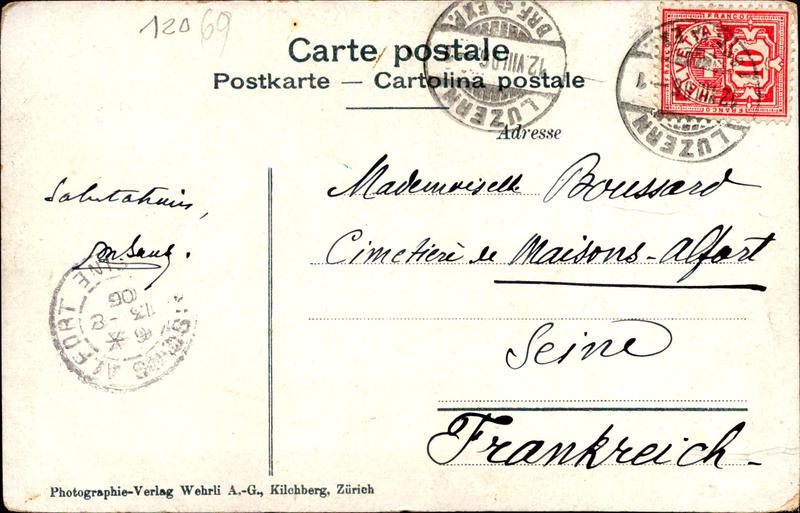 120 69
Carte postale
Postkarte — Cartolina postale
LUZERN
BRF. EXP.
12.VIII.06
FRANCO
10
LUZERN
1
Adresse
Salutations,
Mademoiselle Boussard
Cimetière de Maisons-Alfort
Seine
Frankreich-
ALFORT
SEINE
6
13-8
06
Photographie-Verlag Wehrli A.-G., Kilchberg, Zürich